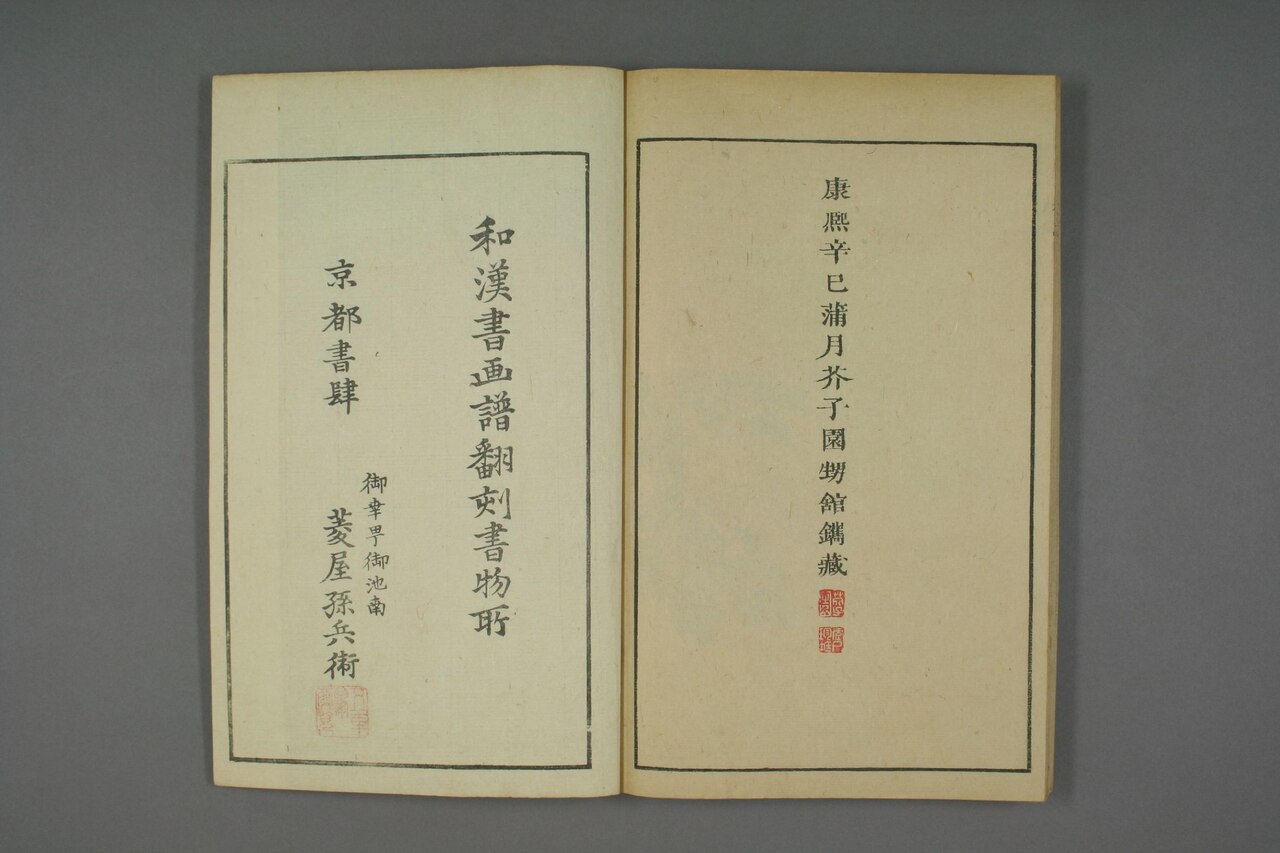 康熙辛巳蒲月芥子園甥舘鐫藏
和漢書画譜翻刻書物所
京都書肆
御幸町御池南
菱屋孫兵衛